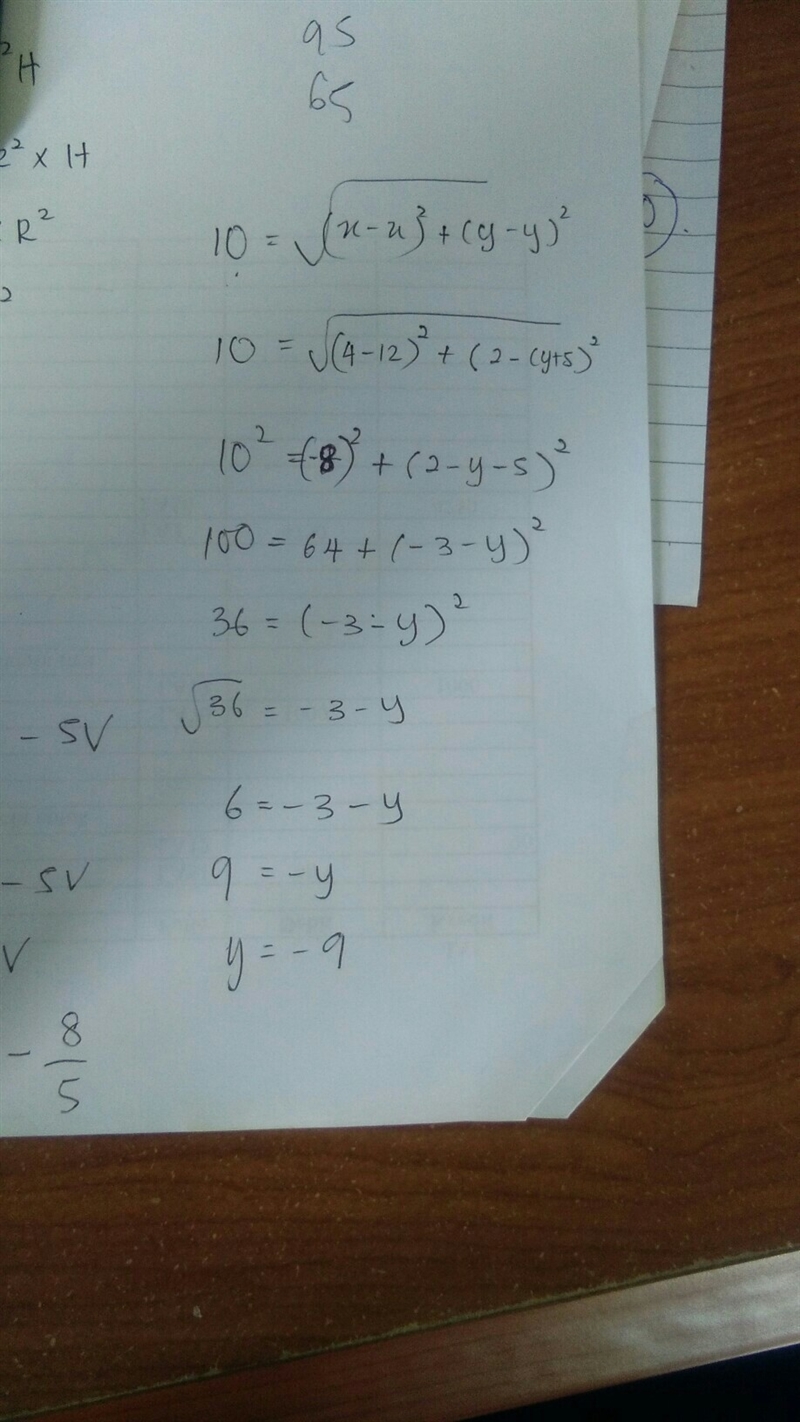 ²H
95
65
² × H
R²
2
10 = √(x-x)² + (y-y)²
10 = √(4-12)² + (2-(y+5)²
10² = (-8)² + (2-y-5)²
100 = 64 + (-3-y)²
36 = (-3-y)²
√36 = -3-y
- 5V
6 = -3-y
- 5V
9 = -y
V
y = -9
- 8/5